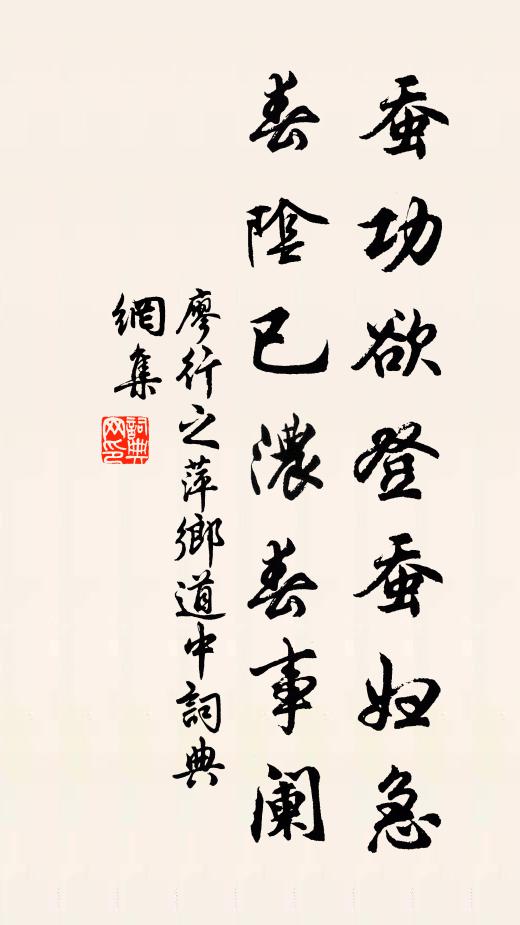 蚕功欲登蚕妇急
春陰已濃春事阑
廖行之萍鄉道中詞典
網集
詞典網印